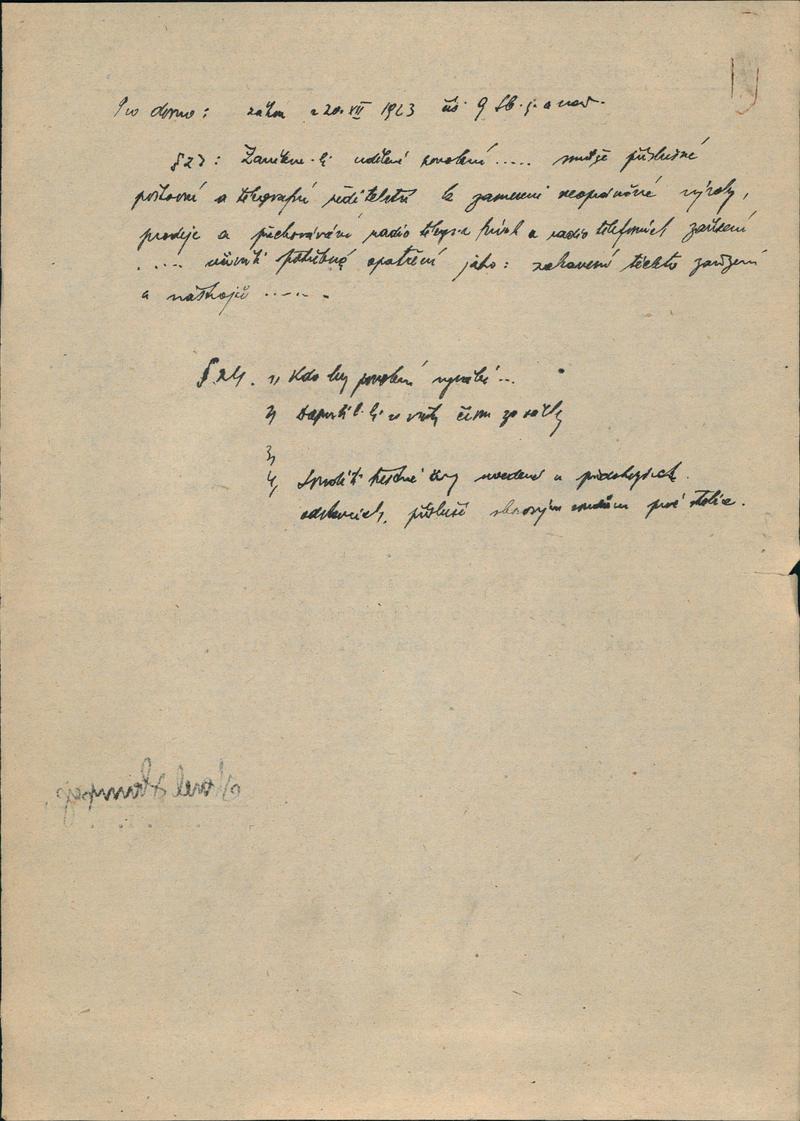 Pro domo: zákon z 20. XII 1923 čís 9 Sb. z. a nař.
§ 23: Zanikne-li udělené povolení ..... příslušné
poštovní a telegrafní ředitelství k zamezení neoprávněné výroby,
prodeje a přechovávání radio telegrafních a radio telefonních zařízení
.... učiniti potřebná opatření jako: zabavení těchto zařízení
a nástrojů ..... .
§ 24. 1, Kdo bez povolení vyrábí ...
2, Dopustil-li se viny činu za války
3,
4, trestné činy uvedené v předchozích
odstavcích, přísluší sborovým soudům prvé stolice.
Karel